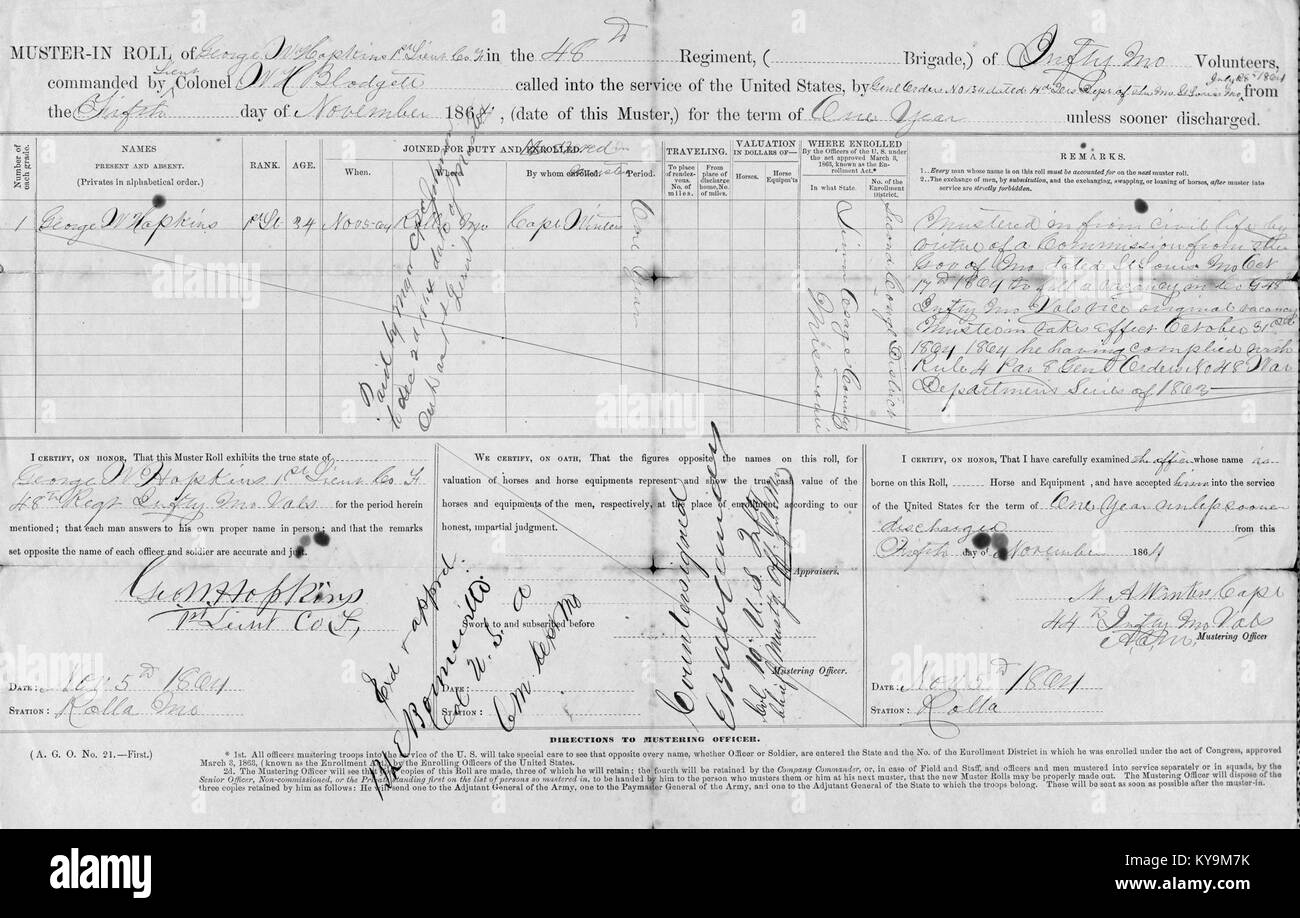 MUSTER-IN ROLL of George W Hopkins 1st Lieut Co. F in the 48th Regiment, ( Brigade,) of Inftry Mo Volunteers,
commanded by Lieut Colonel W H Blodgett called into the service of the United States, by Genl Orders No 134 dated Hd Qrs Dept of the Mo St Louis Mo July 28th 1864 from
the Fifth day of November 1864, (date of this Muster,) for the term of One Year unless sooner discharged.
Number of each grade.
NAMES
PRESENT AND ABSENT.
(Privates in alphabetical order.)
RANK.
AGE.
JOINED FOR DUTY AND ENROLLED.
When.
By whom enrolled.
Period.
TRAVELING.
To place of rendezvous, No. of miles.
From place of discharge home, No. of miles.
VALUATION IN DOLLARS OF—
Horses.
Horse Equipm'ts
WHERE ENROLLED
By the Officers of the U. S. under the act approved March 3, 1863, known as the Enrollment Act.*
In what State.
No. of the Enrollment District.
REMARKS.
1..Every man whose name is on this roll must be accounted for on the next muster roll.
2..The exchange of men, by substitution, and the exchanging, swapping, or loaning of horses, after muster into service are strictly forbidden.
1 George W Hopkins 1st Lt 24 Nov 5-64 Rolla Mo Capt Winters
One Year
Linn Osage County
Missouri
Second Congl District
Paid by Maj
to Dec 31
Mustered in from civil life by
virtue of a Commission from the
Gov of Mo dated St Louis Mo Oct
17th 1864 to fill a vacancy in Co G 48
Inftry Mo Vols vice original vacancy
Muster in takes effect October 31st
1864 1864 he having complied with
Rule 4 Par 8 Genl Orders No 48 War
Department Series of 1863
I CERTIFY, ON HONOR, That this Muster Roll exhibits the true state of
George W Hopkins 1st Lieut Co. F
48th Regt Inftry Mo Vols for the period herein
mentioned; that each man answers to his own proper name in person; and that the remarks
set opposite the name of each officer and soldier are accurate and just.
Geo W Hopkins
1st Lieut Co F,
DATE: Nov 5th 1864
STATION: Rolla Mo
WE CERTIFY, ON OATH, That the figures opposite the names on this roll, for
valuation of horses and horse equipments represent and show the true cash value of the
horses and equipments of the men, respectively, at the place of enrollment according to our
honest, impartial judgment.
Appraisers.
Sworn to and subscribed before
Mustering Officer.
DATE:
STATION:
Exd & apprd.
Col U. S. A
CM Dept Mo
Countersigned
Col 10th U. S. Inf
Chief Musty Off
I CERTIFY, ON HONOR, That I have carefully examined the officer whose name is
borne on this Roll, Horse and Equipment, and have accepted him into the service
of the United States for the term of One Year unless sooner
discharged from this
Fifth day of November 1864
N A Winters Capt
44th Inftry Mo Vols
A.C.M. Mustering Officer
DATE: Nov 5th 1864
STATION: Rolla
DIRECTIONS TO MUSTERING OFFICER.
(A. G. O. No. 21.—First.)
* 1st. All officers mustering troops into the service of the U. S. will take special care to see that opposite every name, whether Officer or Soldier, are entered the State and the No. of the Enrollment District in which he was enrolled under the act of Congress, approved
March 3, 1863, (known as the Enrollment Act,) by the Enrolling Officers of the United States.
2d. The Mustering Officer will see that copies of this Roll are made, three of which he will retain; the fourth will be retained by the Company Commander, or, in case of Field and Staff, and officers and men mustered into service separately or in squads, by the
Senior Officer, Non-commissioned, or the Private standing first on the list of persons so mustered in, to be handed by him to the person who musters them or him at his next muster, that the new Muster Rolls may be properly made out. The Mustering Officer will dispose of the
three copies retained by him as follows: He will send one to the Adjutant General of the Army, one to the Paymaster General of the Army, and one to the Adjutant General of the State to which the troops belong. These will be sent as soon as possible after the muster-in.
alamy
Image ID: KY9M7K
www.alamy.com